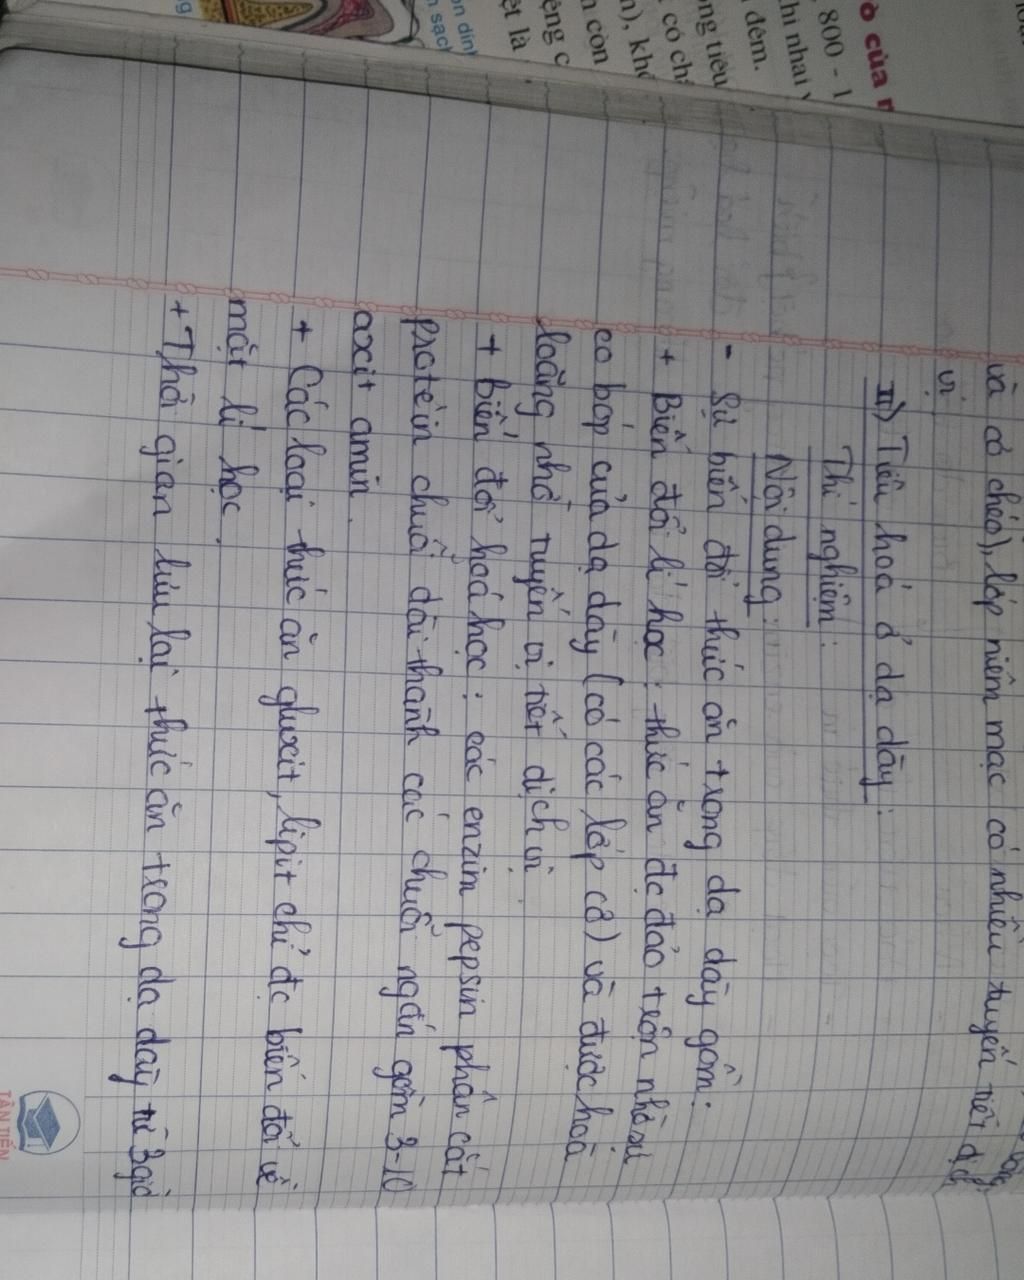 và cơ chéo), lớp niêm mạc có nhiều tuyến tiết dịch
vị.
II) Tiêu hoá ở dạ dày:
Thí nghiệm:
Nội dung:
- Sự biến đổi thức ăn trong dạ dày gồm:
+ Biến đổi lí học: thức ăn đc đảo trộn nhờ sự
co bóp của dạ dày (có các lớp cơ) và được hoà
loãng nhờ tuyến vị tiết dịch vị.
+ biến đổi hoá học: các enzim pepsin phân cắt
protêin chuỗi dài thành các chuỗi ngắn gồm 3-10
axit amin.
+ Các loại thức ăn gluxit, lipit chỉ đc biến đổi về
mặt lí học.
+ Thời gian lưu lại thức ăn trong dạ dày từ 3 giờ
TÂN TIẾN
ò của
800 - 1
hi nhai
đêm.
ống tiêu
có ch
n), kh
n còn
ệt là